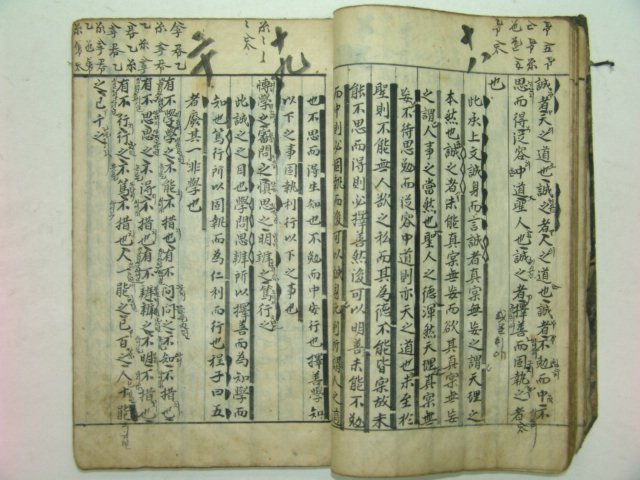 十八
誠者天之道也誠之者人之道也誠者不勉而中不
思而得從容中道聖人也誠之者擇善而固執之者
也
此承上文誠身而言誠者真宲无妄之謂天理之
本然也誠之者未能真宲无妄而欲其真宲无妄
之謂人事之當然也聖人之德渾然天理真宲无
妄不待思勉而從容中道則亦天之道也未至於
聖則不能無人欲之私而其為德不能皆宲故未
能不思而得則必擇善然後可以明善未能不勉
而中則必固執而後可以誠身此則所謂人之道
十九
也不思而得生知也不勉而中安行也擇善學知
以下之事固執利行以下之事也
博學之審問之愼思之明辨之篤行之
此誠之之目也學問思辨所以擇善而為知學而
知也篤行所以固執而為仁利而行也程子曰五
者廢其一非學也
二十
有不學學之不能不措也有不問問之不知不措也
有不思思之不得不措也有不辨辨之不明不措也
有不行行之不篤不措也人一能之己百之人十能
之己千之